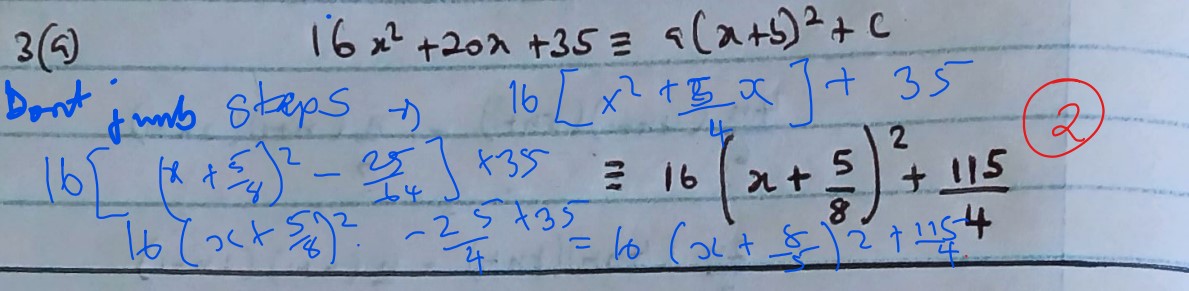 3(a) 16x² + 20x + 35 ≡ a(x+b)² + c
Dont jumb steps → 16[x² + 5/4 x] + 35
②
16[(x + 5/8)² - 25/64] + 35 ≡ 16(x + 5/8)² + 115/4
16(x + 5/8)² - 25/4 + 35 = 16(x + 8/5)² + 115/4